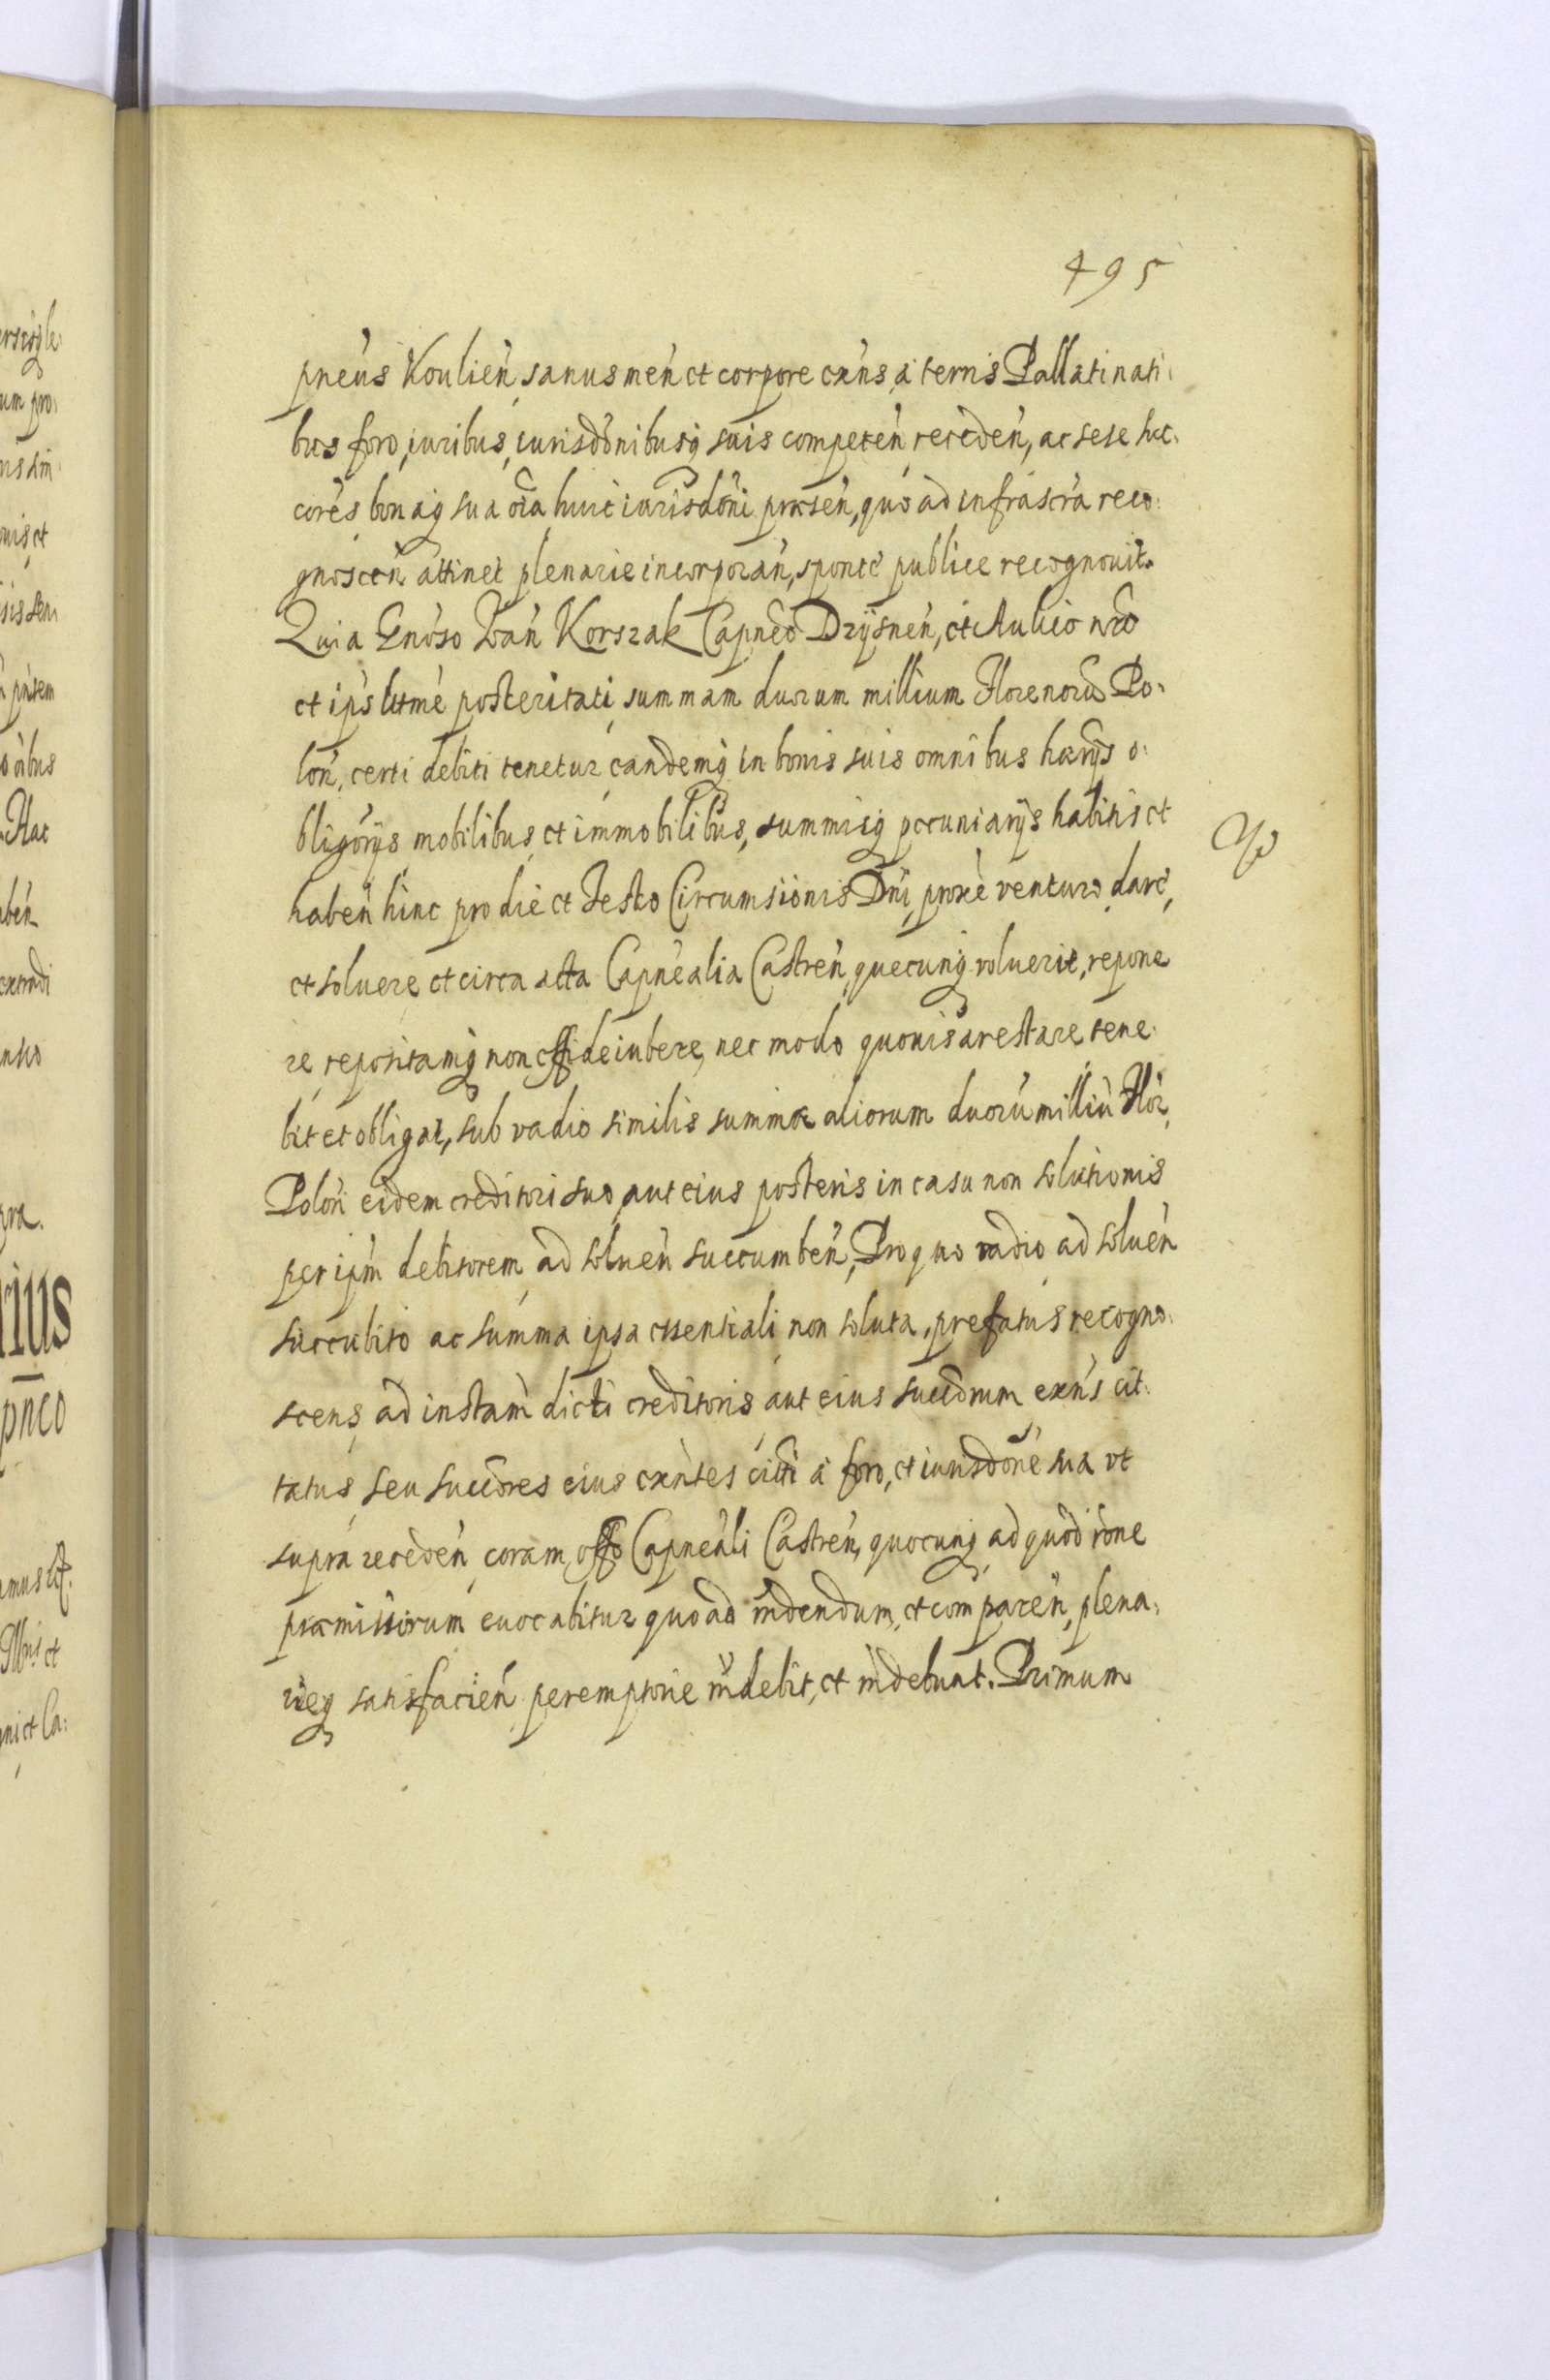 495
pneus Koulień, sanus meń et corpore exńs, a terris Pallatinati:
bus foro, iuribus, iurisdońibusq suis competeń recedeń, ac sese suc:
cores bonaq sua oīa huic iurisdońi praeseń, quo ad infrascra reco:
gnosceń attinet plenarie incorporań, sponte publice recognouit.
Quia Gnoso Iwań Korszak Capneo Dzÿsneń, et Aulico nro
et ips ltme posteritati summam duorum millium Florenorū Po:
loń, certi debiti tenetur, eandemq in bonis suis omnibus haerÿs o:
bligorÿs mobilibus et immobilibus, summisq pecuniarÿs habitis et
habeń hinc pro die et Festo Circumsionis Dńi proxe venturo dare,
et soluere et circa acta Capnealia Castreń, quecunq voluerit, repone
re repositamq non offi deiubere, nec modo quouis arestare tene:
bit et obligat, sub vadio similis summae aliorum duorū milliū Flor,
Poloń eidem creditori suo, aut eius posteris in casu non solutionis
per ipm debitorem ad solueń succumbeń, Pro quo vadio ad solueń
succubito ac summa ipsa essentiali non soluta, prefatus recogno:
scens ad instam dicti creditoris aut eius succorum exńs cit:
tatus seu succores eius exntes citti a foro, et iurisdone sua vt
supra recedeń coram offo Capneali Castreń, quocunq ad quod rone
praemissorum euocabitur quo ad rńdendum, et compareń, plena:
rieq satisfacień peremptorie rńdebit, et rńdebunt. Primum